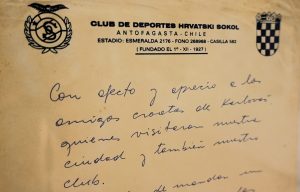 CLUB DE DEPORTES HRVATSKI SOKOL
ANTOFAGASTA - CHILE
ESTADIO: ESMERALDA 2176 - FONO 268968 - CASILLA 562
(FUNDADO EL 1º - XI - 1927)
Con afecto y aprecio a los
amigos croatas de Karlovac
quienes visitaron nuestra
ciudad y también nuestro
club.
de mandas un